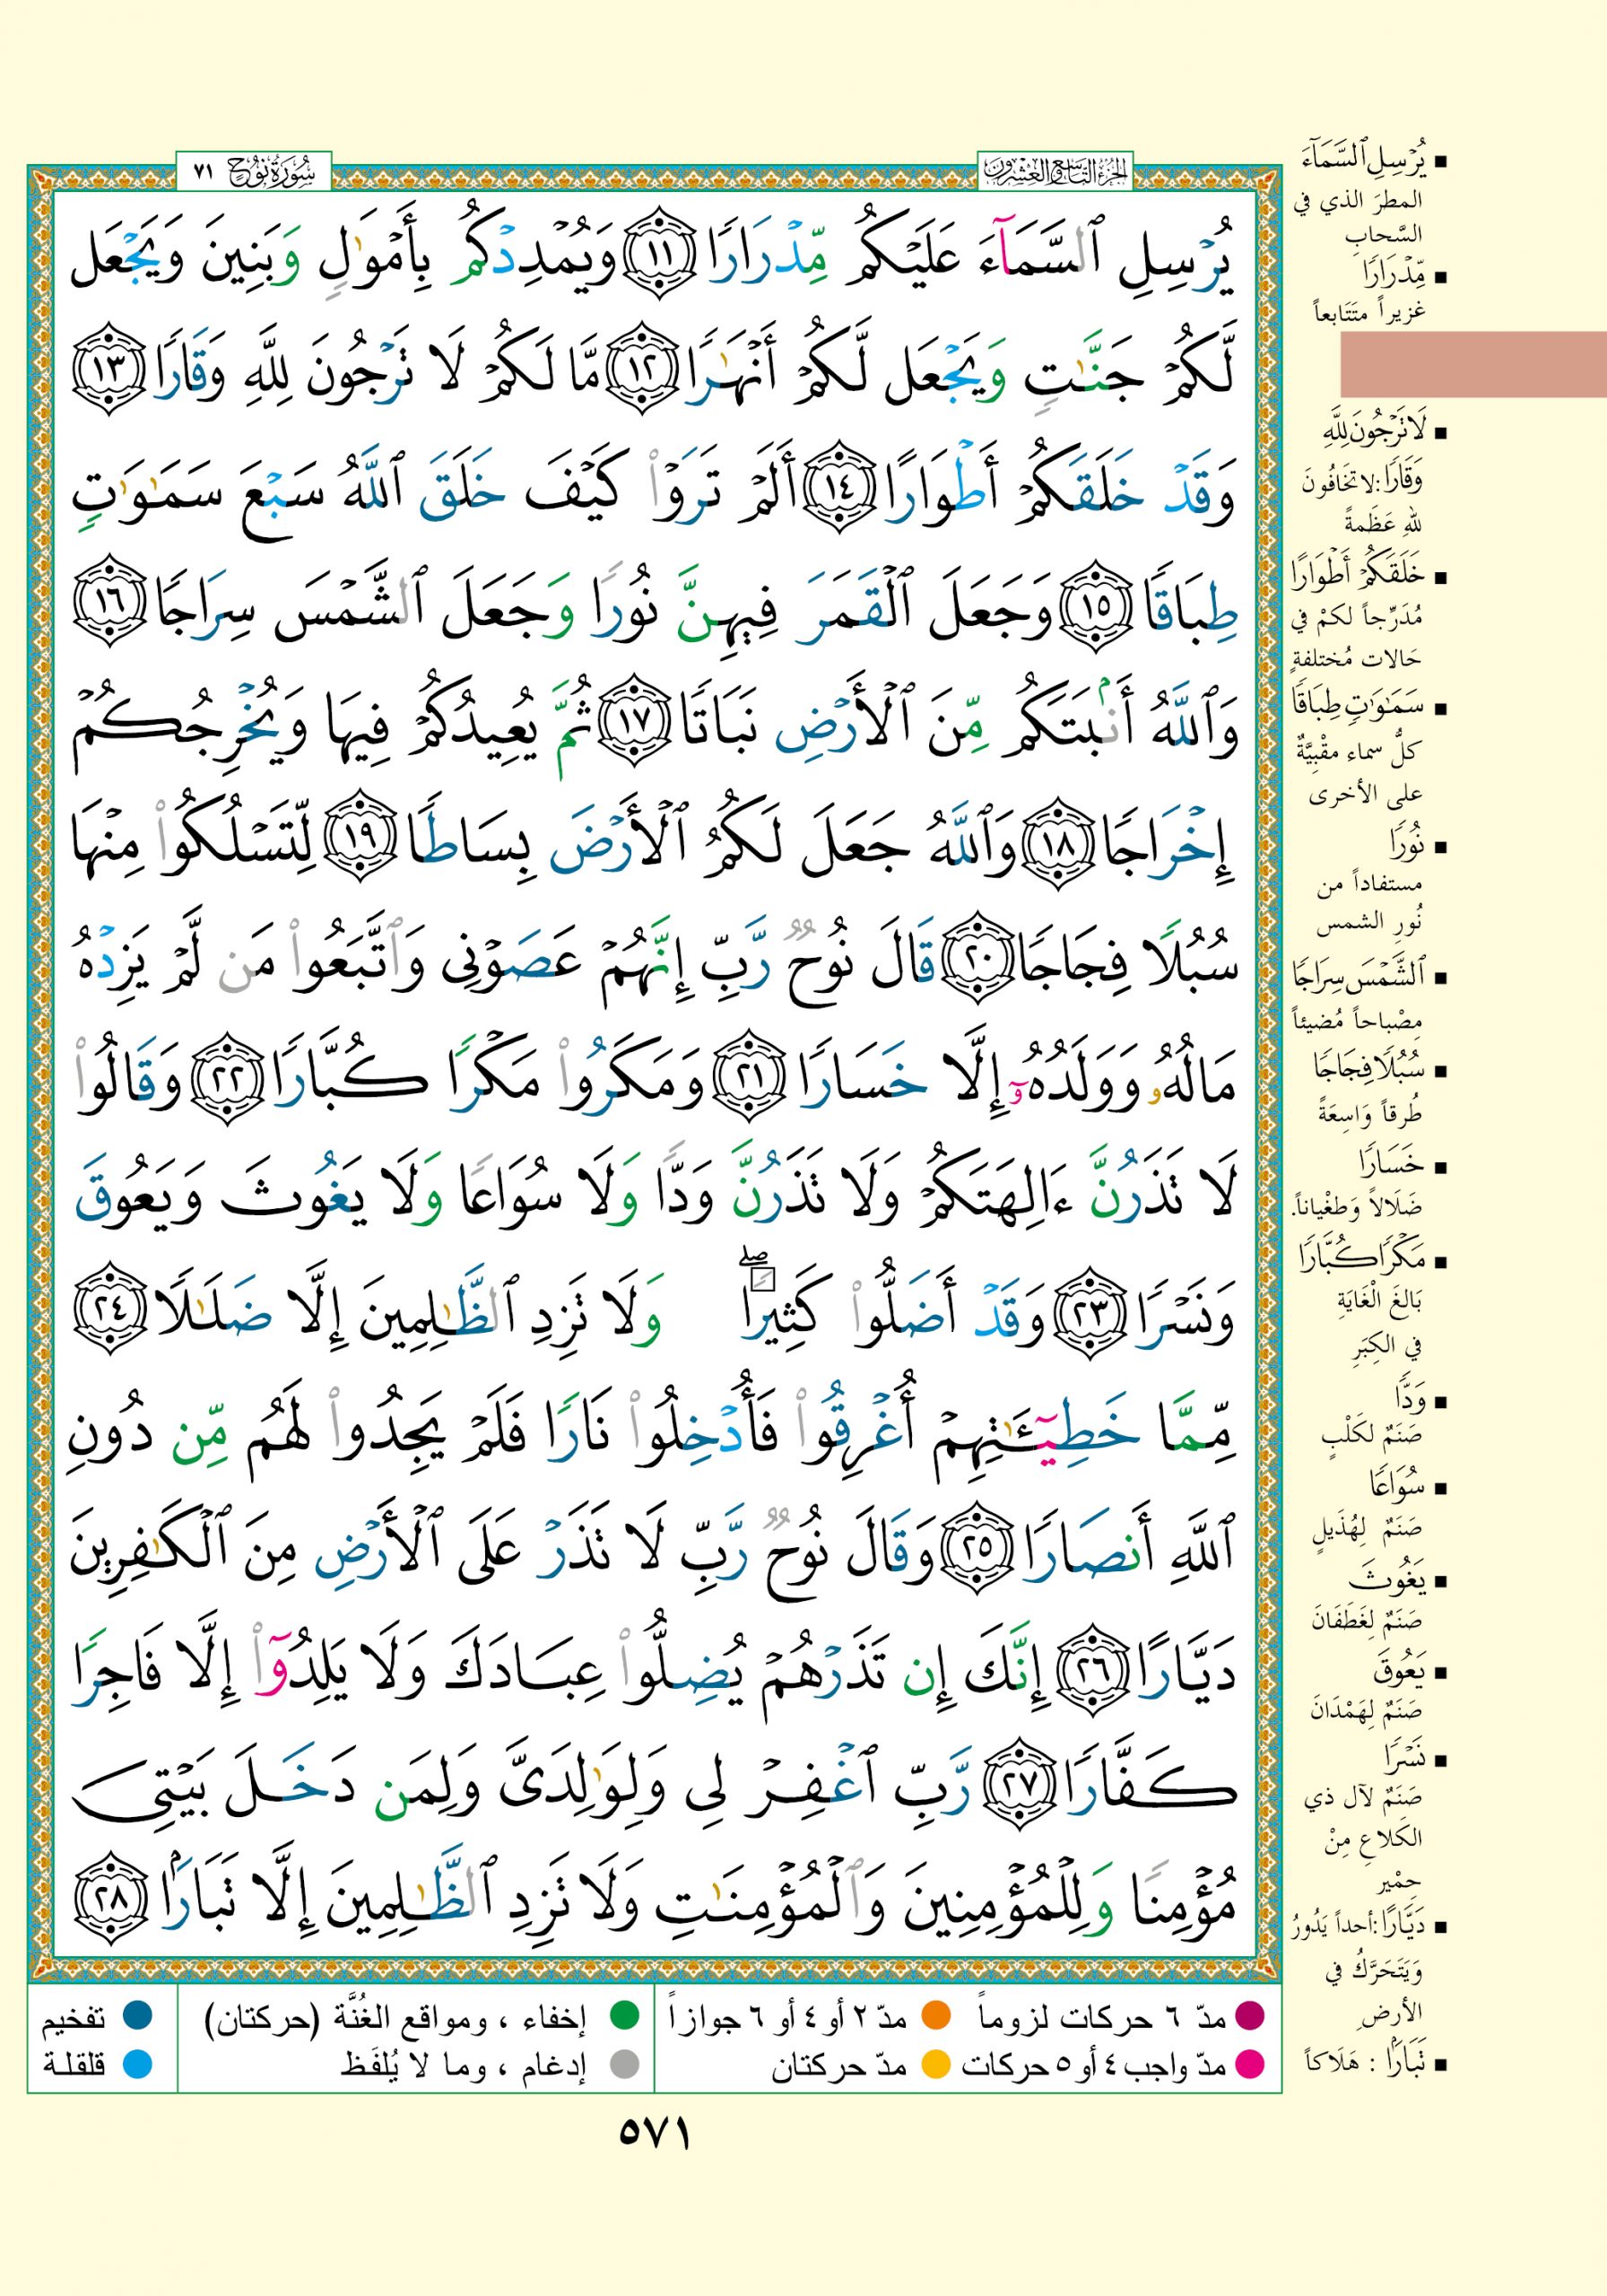 الجزء التاسع والعشرون
سورة نوح ٧١
يُرۡسِلِ ٱلسَّمَآءَ عَلَيۡكُم مِّدۡرَارٗا ١١ وَيُمۡدِدۡكُم بِأَمۡوَٰلٖ وَبَنِينَ وَيَجۡعَل
لَّكُمۡ جَنَّٰتٖ وَيَجۡعَل لَّكُمۡ أَنۡهَٰرٗا ١٢ مَّا لَكُمۡ لَا تَرۡجُونَ لِلَّهِ وَقَارٗا ١٣
وَقَدۡ خَلَقَكُمۡ أَطۡوَارًا ١٤ أَلَمۡ تَرَوۡاْ كَيۡفَ خَلَقَ ٱللَّهُ سَبۡعَ سَمَٰوَٰتٖ
طِبَاقٗا ١٥ وَجَعَلَ ٱلۡقَمَرَ فِيهِنَّ نُورٗا وَجَعَلَ ٱلشَّمۡسَ سِرَاجٗا ١٦
وَٱللَّهُ أَنۢبَتَكُم مِّنَ ٱلۡأَرۡضِ نَبَاتٗا ١٧ ثُمَّ يُعِيدُكُمۡ فِيهَا وَيُخۡرِجُكُمۡ
إِخۡرَاجٗا ١٨ وَٱللَّهُ جَعَلَ لَكُمُ ٱلۡأَرۡضَ بِسَاطٗا ١٩ لِّتَسۡلُكُواْ مِنۡهَا
سُبُلٗا فِجَاجٗا ٢٠ قَالَ نُوحٞ رَّبِّ إِنَّهُمۡ عَصَوۡنِي وَٱتَّبَعُواْ مَن لَّمۡ يَزِدۡهُ
مَالُهُۥ وَوَلَدُهُۥٓ إِلَّا خَسَارٗا ٢١ وَمَكَرُواْ مَكۡرٗا كُبَّارٗا ٢٢ وَقَالُواْ
لَا تَذَرُنَّ ءَالِهَتَكُمۡ وَلَا تَذَرُنَّ وَدّٗا وَلَا سُوَاعٗا وَلَا يَغُوثَ وَيَعُوقَ
وَنَسۡرٗا ٢٣ وَقَدۡ أَضَلُّواْ كَثِيرٗاۖ وَلَا تَزِدِ ٱلظَّٰلِمِينَ إِلَّا ضَلَٰلٗا ٢٤
مِّمَّا خَطِيٓـَٰٔتِهِمۡ أُغۡرِقُواْ فَأُدۡخِلُواْ نَارٗا فَلَمۡ يَجِدُواْ لَهُم مِّن دُونِ
ٱللَّهِ أَنصَارٗا ٢٥ وَقَالَ نُوحٞ رَّبِّ لَا تَذَرۡ عَلَى ٱلۡأَرۡضِ مِنَ ٱلۡكَٰفِرِينَ
دَيَّارًا ٢٦ إِنَّكَ إِن تَذَرۡهُمۡ يُضِلُّواْ عِبَادَكَ وَلَا يَلِدُوٓاْ إِلَّا فَاجِرٗا
كَفَّارٗا ٢٧ رَّبِّ ٱغۡفِرۡ لِي وَلِوَٰلِدَيَّ وَلِمَن دَخَلَ بَيۡتِيَ
مُؤۡمِنٗا وَلِلۡمُؤۡمِنِينَ وَٱلۡمُؤۡمِنَٰتِ وَلَا تَزِدِ ٱلظَّٰلِمِينَ إِلَّا تَبَارَۢا ٢٨
يُرۡسِلِ ٱلسَّمَآءَ
المطرَ الذي في
السَّحابِ
مِّدۡرَارٗا
غزيراً متَتَابعاً
لَا تَرۡجُونَ لِلَّهِ
وَقَارٗا: لا تخَافُونَ
للهِ عَظَمةً
خَلَقَكُمۡ أَطۡوَارًا
مُدَرِّجاً لكمْ في
حَالات مُختلفةٍ
سَمَٰوَٰتٖ طِبَاقٗا
كلُّ سماء مقْبِيَّةٌ
على الأخرى
نُورٗا
مستفاداً من
نُورِ الشمس
ٱلشَّمۡسَ سِرَاجٗا
مِصْباحاً مُضيئاً
سُبُلٗا فِجَاجٗا
طُرقاً وَاسِعَةً
خَسَارٗا
ضَلَالاً وَطغْياناً.
مَكۡرٗا كُبَّارٗا
بَالغَ الْغَايَةِ
في الكِبَرِ
وَدّٗا
صَنَمٌ لكَلْبٍ
سُوَاعٗا
صَنَمٌ لِهُذَيلٍ
يَغُوثَ
صَنَمٌ لِغَطَفَانَ
يَعُوقَ
صَنَمٌ لِهَمْدَانَ
نَسۡرٗا
صَنَمٌ لآل ذي
الكَلاعِ مِنْ
حِمْير
دَيَّارًا: أحداً يَدُورُ
وَيَتَحَرَّكُ في
الأرضِ
تَبَارَۢا : هَلَاكاً
مدّ ٦ حركات لزوماً مدّ ٢ أو ٤ أو ٦ جوازاً إخفاء ، ومواقع الغُنَّة (حركتان) تفخيم
مدّ واجب ٤ أو ٥ حركات مدّ حركتان إدغام ، وما لا يُلفَظ قلقلة
٥٧١